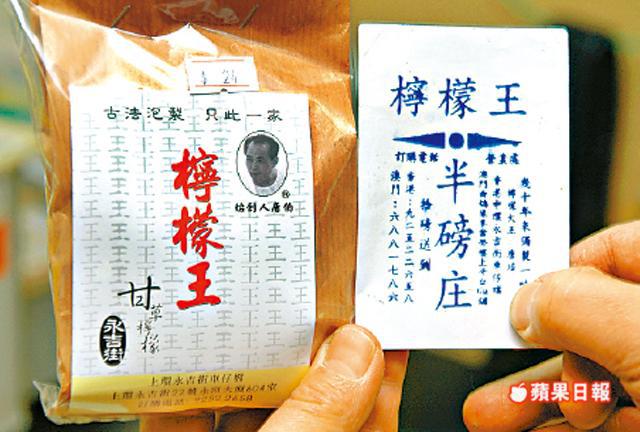 $ 24
古法泡製 只此一家
檸檬王
®
始創人唐伯
甘草檸檬
永吉街
上環永吉街車仔檔
上環永吉街22號永源大廈604室
訂購電話:9252 2658
檸檬王
訂購電話
營業處
半磅庄
幾十年來獨一
檸檬大王 唐伯
香港中環永吉街車仔檔
拾磅送貨
香港:九二五二二六五八
澳門:六八八一七八六
蘋果日報